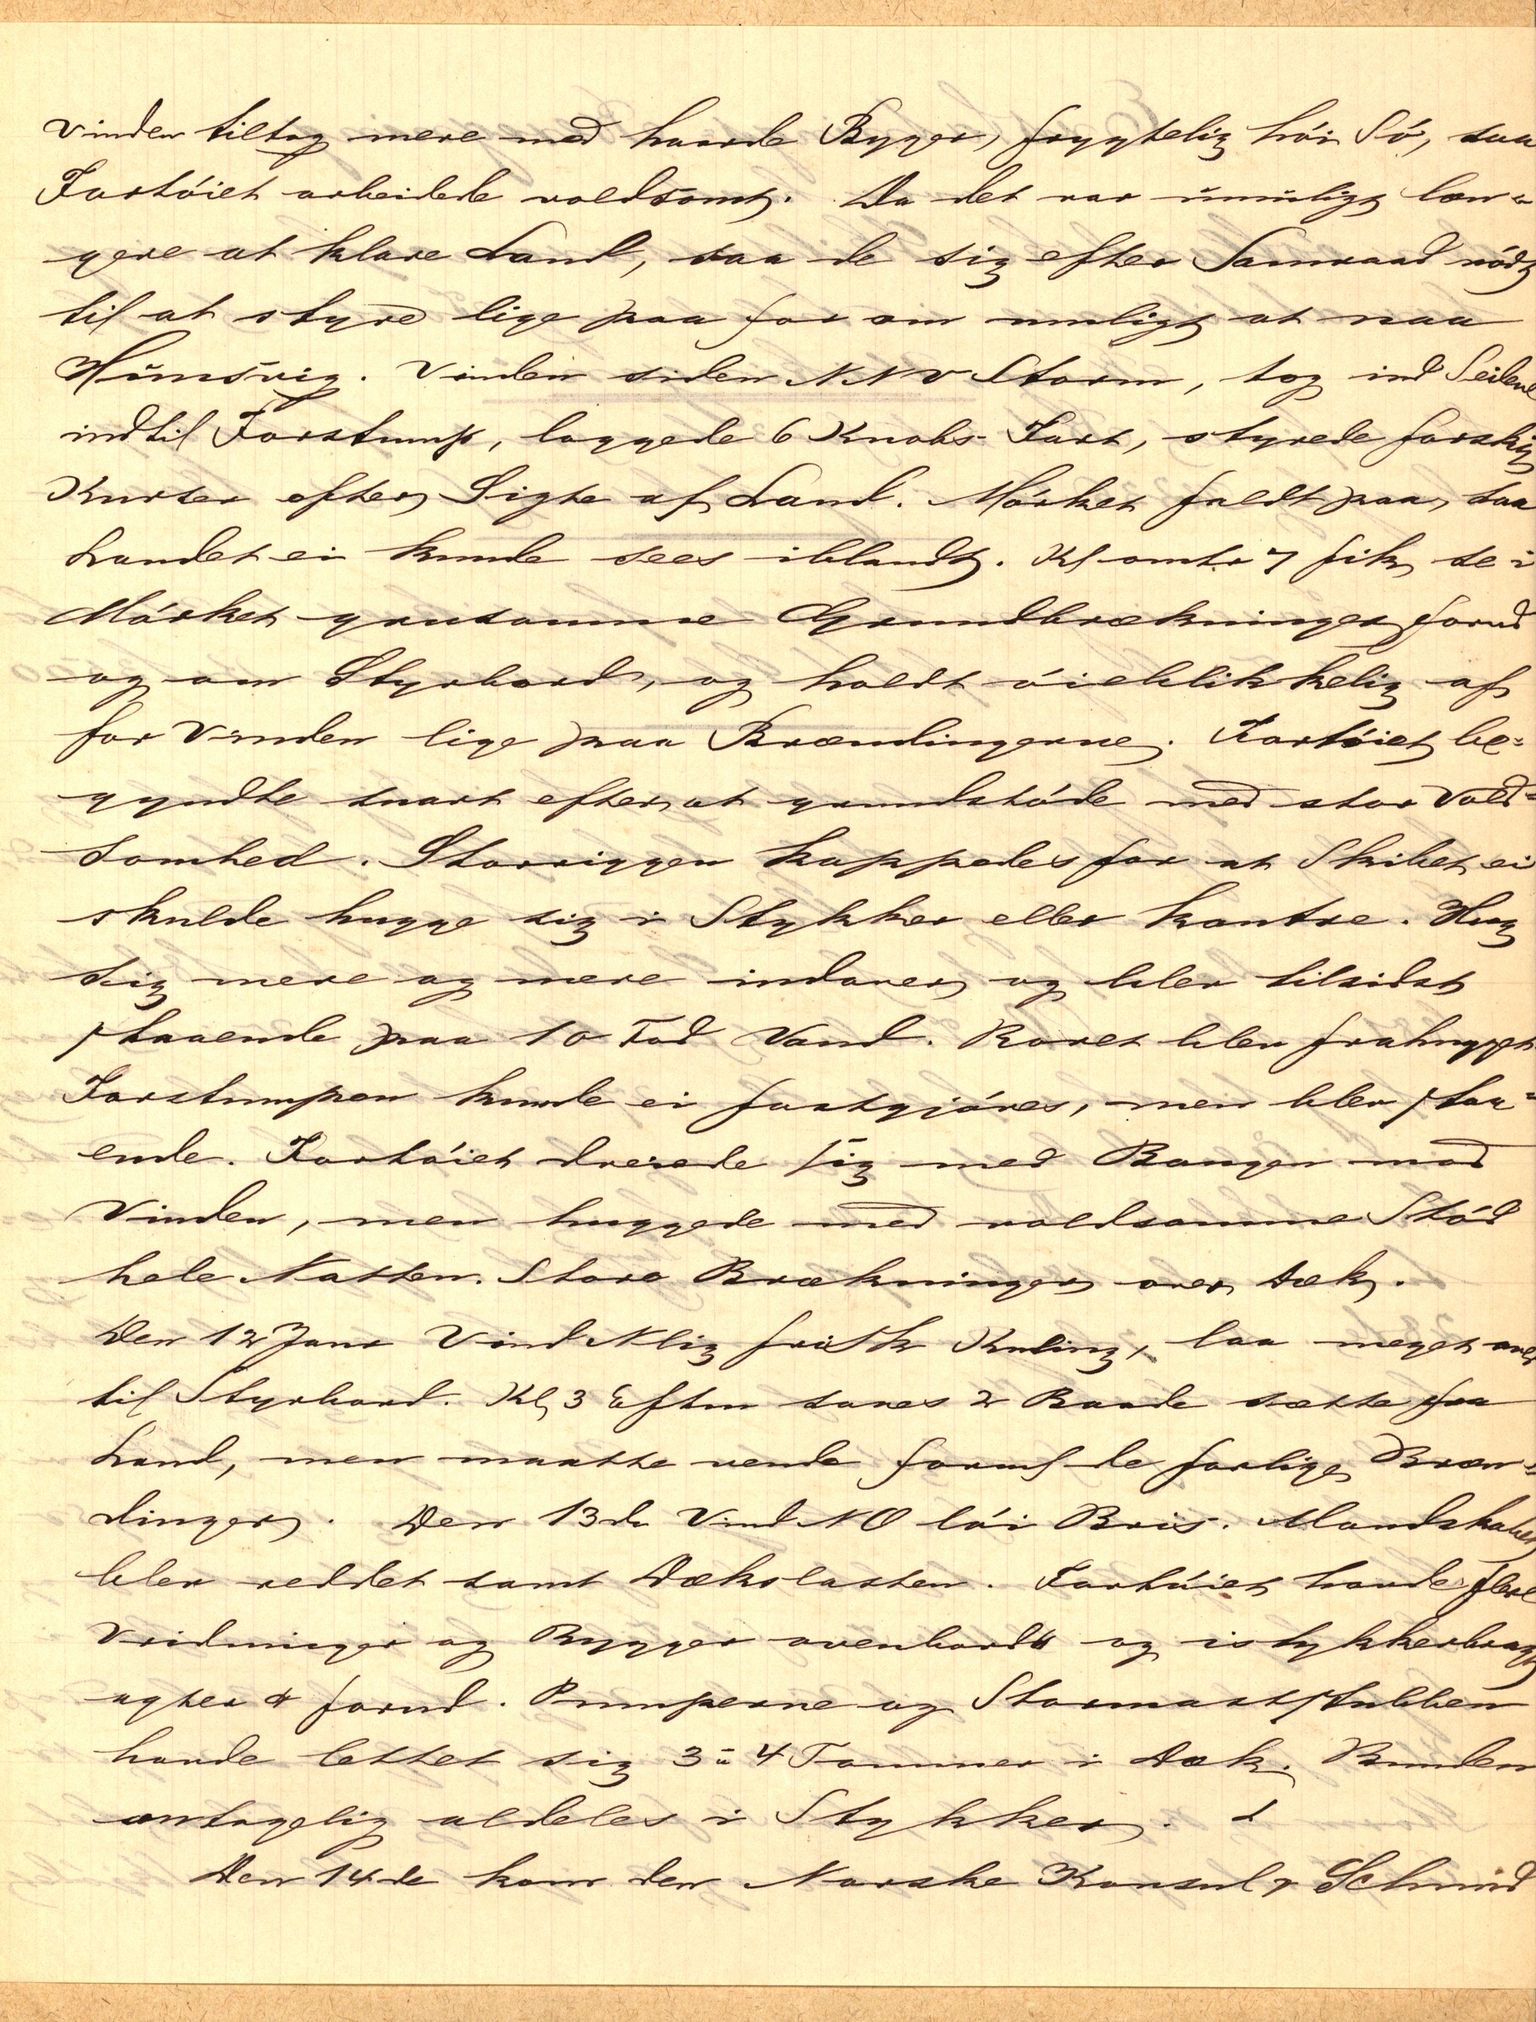 Vinden tiltog mere med haarde Byger, frygtelig höi Sö, saa
Fartöiet arbeidede voldsomt. Da det var umuligt læn-
gere at klare Land, saa de sig efter Samraad nödt
til at styre lige paa for om muligt at naa
Hunsvig. Vinden siden NNV Storm, tog ind Seilene
indtil Forstump, loggede 6 Knobs Fart, styrede forskj
Kurser efter Sigte af Land. Mörket faldt paa, saa
Landet ei kunde sees iblandt. Kl omtr 7 fik se i
Mörket grusomme Grundbrækninger forud
og om Styrbord, og holdt öieblikkelig af
for Vinden lige paa Brændingerne. Fartöiet be-
gyndte snart efter at grundstöde med stor Vold-
somhed. Storriggen kappedes for at Skibet ei
skulde hugge sig i Stykker eller kantre. Hug
sig mere og mere indover og blev tilsidst
staaende paa 10 Fod Vand. Roret blev frahugget
Forstumpen kunde ei fastgjöres, men blev staa-
ende. Fartöiet dreiede sig med Bougen mod
Vinden, men huggede med voldsomme Stöd
hele Natten. Store Brækninger over Dæk.
Den 12 Janr Vind Nlig frisk Kuling, laa meget over
til Styrbord. Kl 3 Eftm saaes 2 Baade sætte fra
Land, men maatte vende formd de farlige Bræn-
dinger. Den 13de Vind NO löi Bris. Mandskabet
blev reddet samt Dækslasten. Fartöiet havde flere
Vridninger og Bygger ovenbords og istykkerbragt
agter & forud. Pumperne og Stormaststubben
havde lettet sig 3 á 4 Tommer i Dæk. Bunden
antagelig aldeles i Stykker.
Den 14de kom den Norske Konsul & Schmid